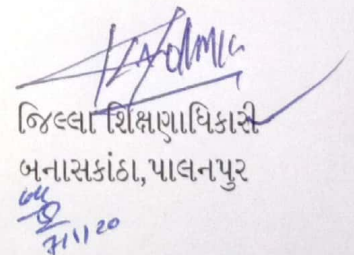 જિલ્લા શિક્ષણાધિકારી
બનાસકાંઠા,પાલનપુર
7/1/20